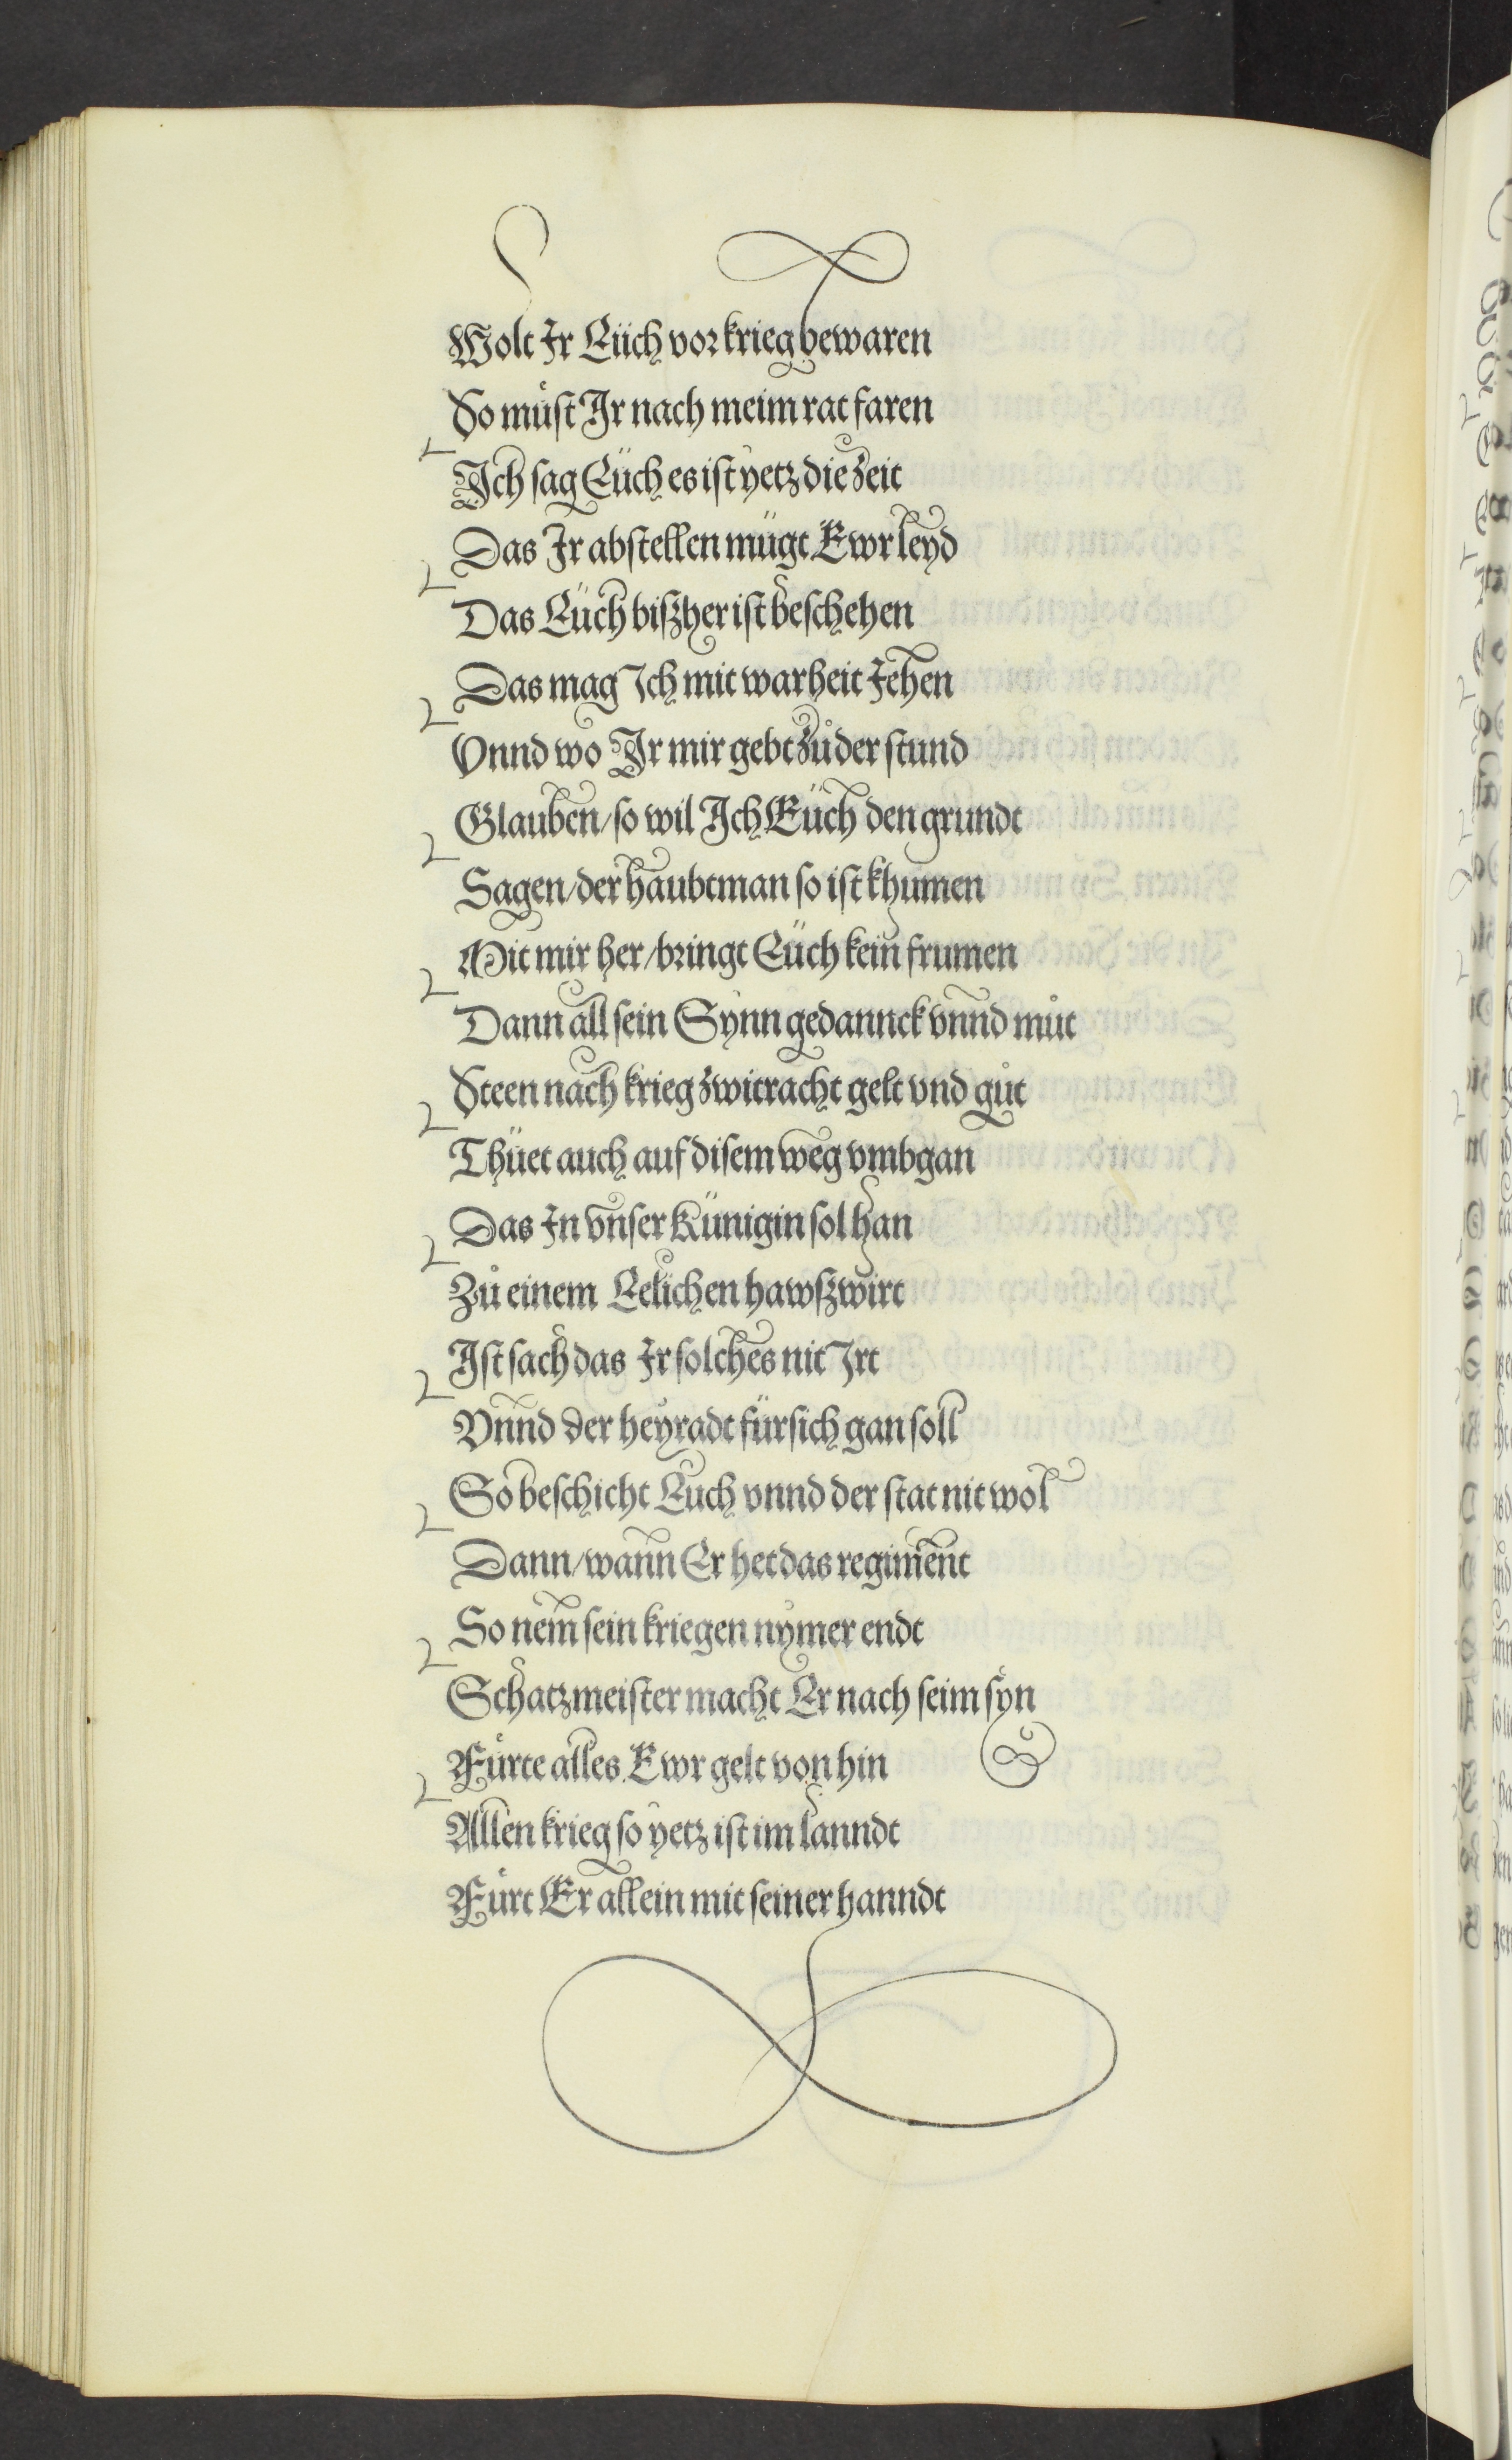 Wolt Ir Eüch vor krieg bewaren
So müst Ir nach meim rat faren
Ich sag Eüch es ist yetz die zeit
Das Ir abstellen mügt Ewr leyd
Das Eüch biszher ist beschehen
Das mag Ich mit warheit Jehen
Vnnd wo Ir mir gebt zů der stund
Glauben / so wil Ich Eüch den grundt
Sagen / der haubtman so ist khumen
Mit mir her / bringt Eüch kein frumen
Dann all sein Synn gedannck vnnd můt
Steen nach krieg zwitracht gelt vnd gůt
Thüet auch auf disem weg vmbgan
Das In vnser Künigin sol han
Zů einem Eelichen hawszwirt
Ist sach das Ir solches nit Irt
Vnnd der heyradt für sich gan soll
So beschicht Euch vnnd der stat nit wol
Dann / wann Er het das regiment
So nem sein kriegen nymer endt
Schatzmeister macht Er nach seim syn
Fůrte alles Ewr gelt von hin
Allen krieg so yetz ist im lanndt
Fůrt Er allein mit seiner hanndt